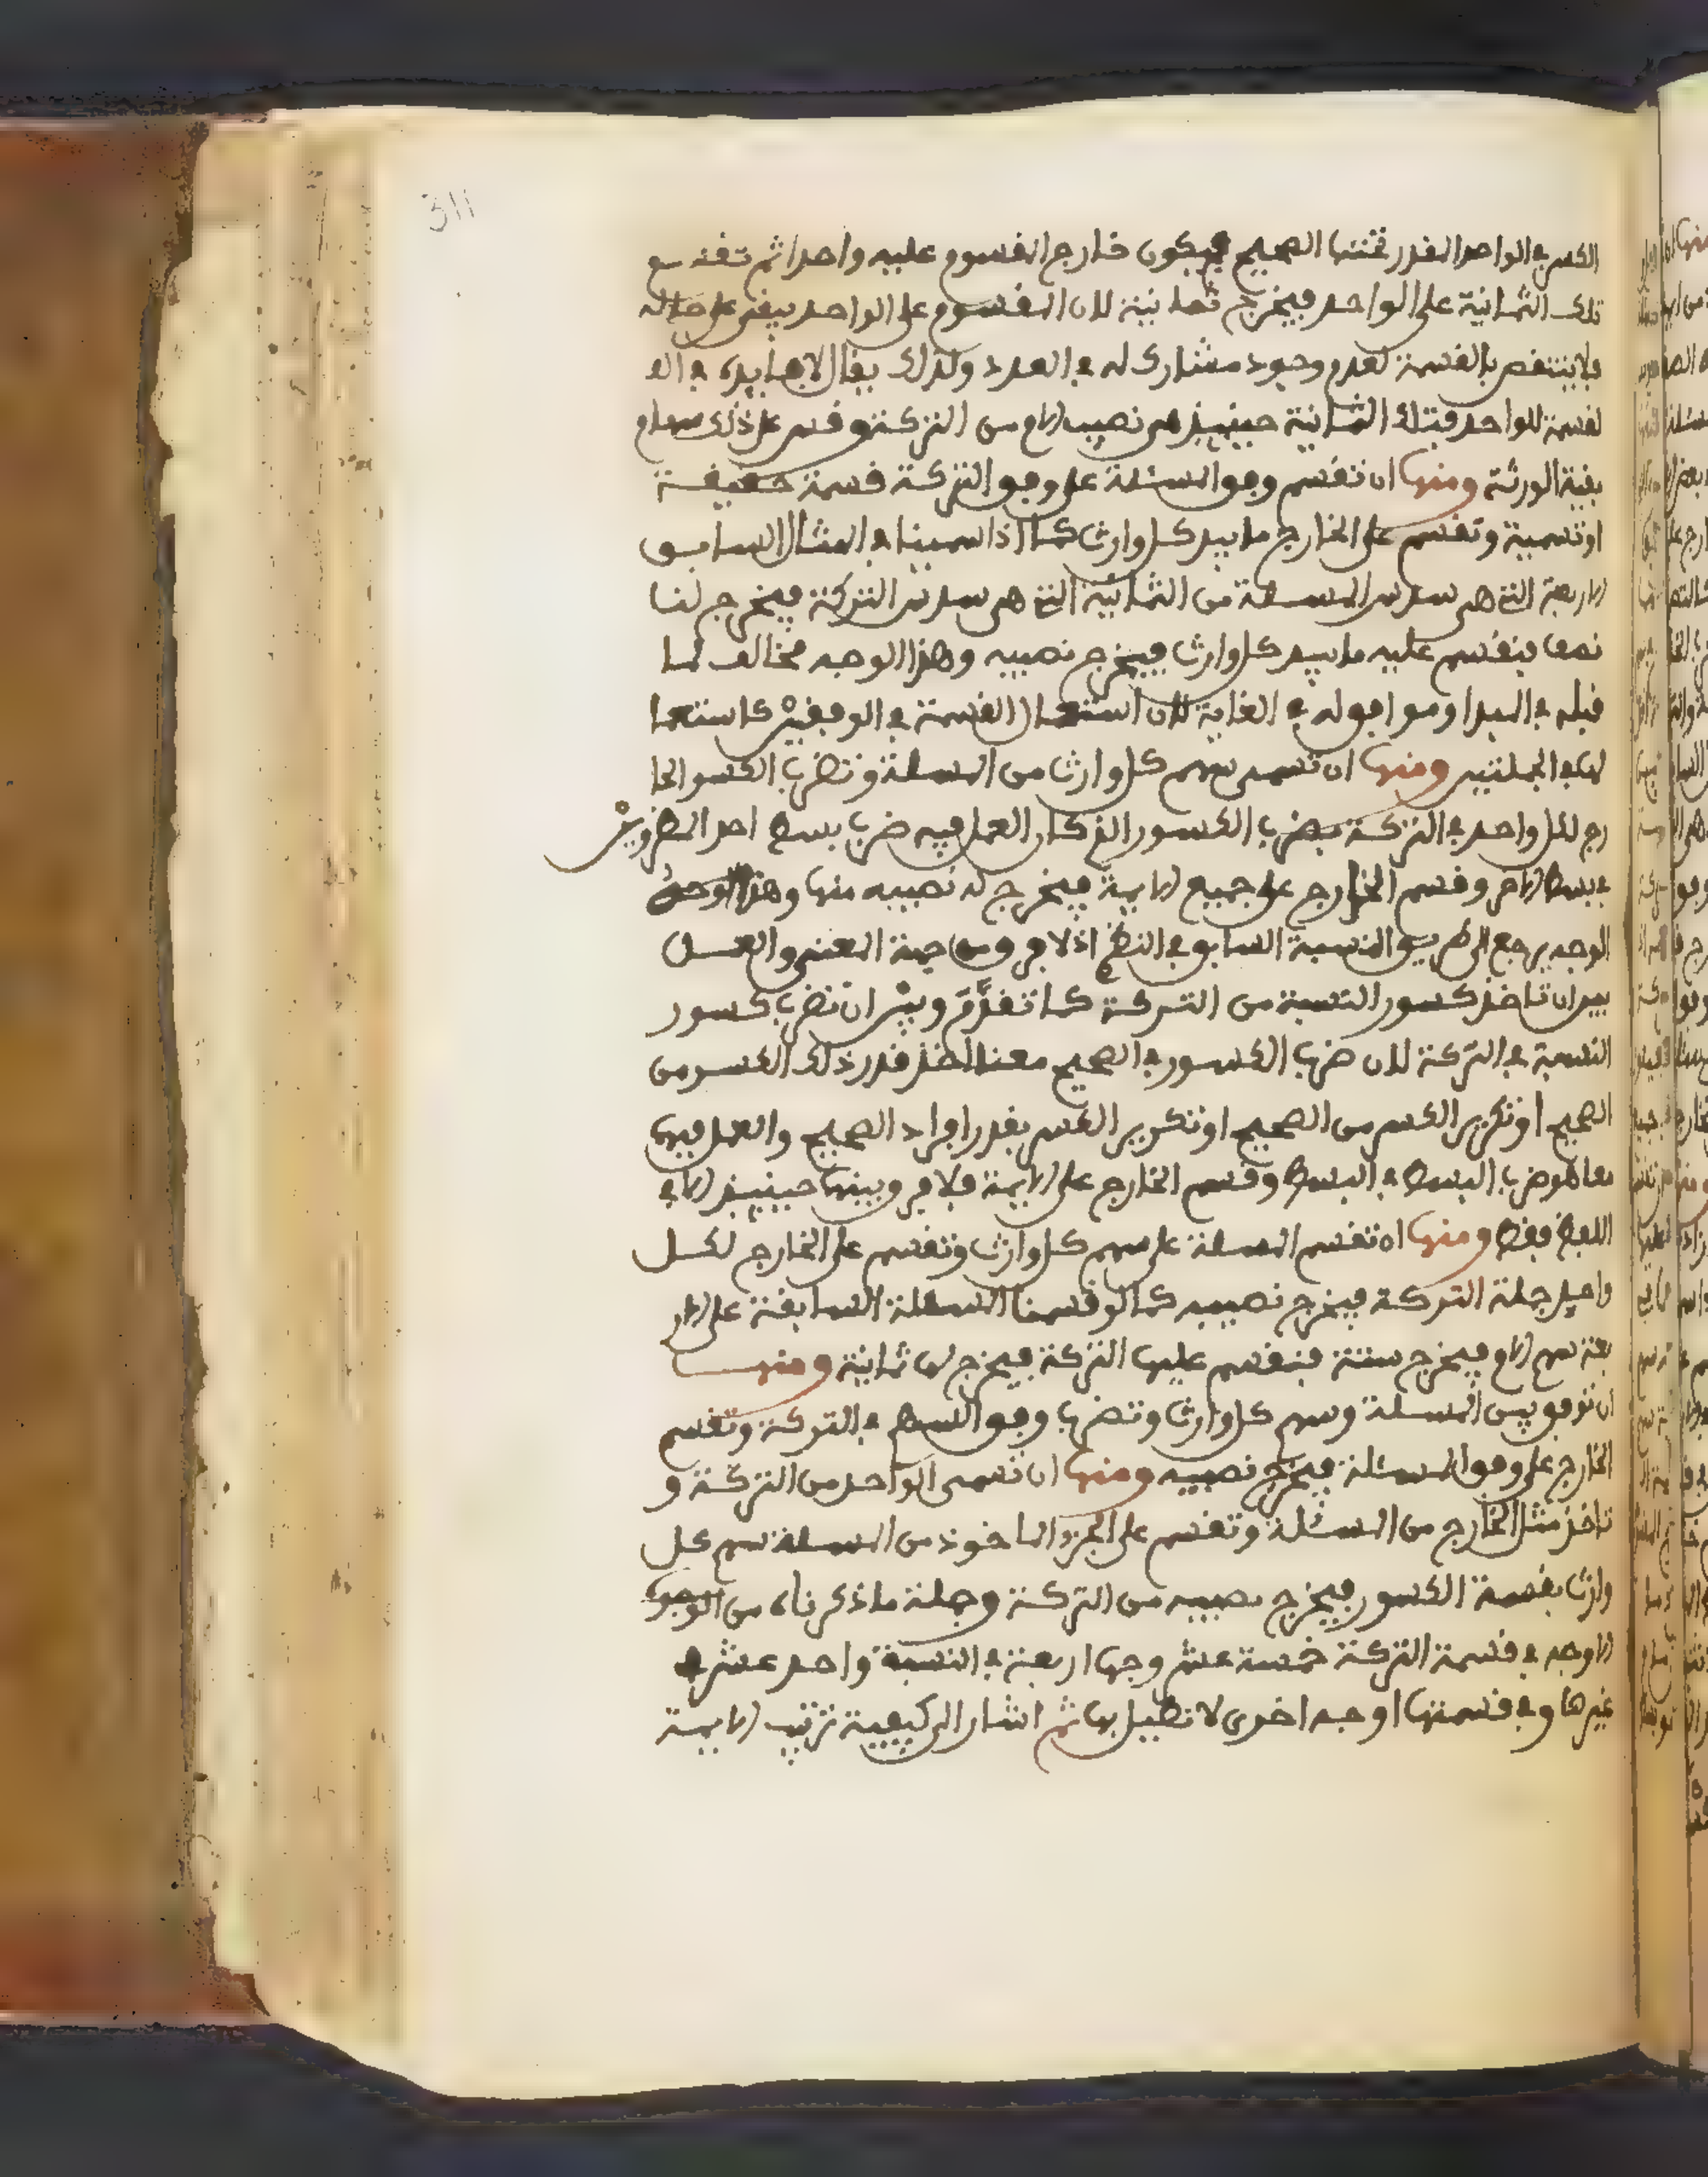 311
الكسر في الواحد المقدر تحتها الصحيح فيكون خارج المقسوم عليه واحدا ثم تقسم
تلك الثمانية على الواحد فيخرج ثمانية لان المقسوم على الواحد يبقى على حاله
فلا ينتقص بالقسمة لعدم وجود مشارك له في العدد ولذلك يقال لا فايدة في ا
لقسمة للواحد فتلك الثمانية حينيذ هي نصيب الام من التركة وقس على ذلك سهام
بقية الورثة ومنها ان تقسم وفق المسئلة على وفق التركة قسمة حقيقة
او تسمية وتقسم على الخارج ما بيد كل وارث كما اذا سمينا في المثال السابق
الاربعة التي هي سدس المسئلة من الثمانية التي هي سدس التركة فيخرج لنا
نصف فنقسم عليه ما بيد كل وارث فيخرج نصيبه وهذا الوجه مخالف لما
قبله في المبدا وموافق له في الغاية لان استعمال القسمة في الوفقين كاستعما
لها في الجملتين ومنها ان تسمى سهم كل وارث من المسئلة وتضرب الكسر الخا
رج لكل واحد في التركة بضرب الكسور الذي كان العمل فيه ضرب بسط احد المضروبين
في بسط الاخر وقسم الخارج على جميع الايمة فيخرج له نصيبه منها وهذا
الوجه يرجع الى طريق النسبة السابق في النظم اذ لا فرق من جهة المعنى والعمل
بين ان تاخذ كسور النسبة من التركة كما تقدم وبين ان تضرب كسور
النسبة في التركة لان ضرب الكسور في الصحيح معناه اخذ قدر ذلك الكسر من
الصحيح او تكرير الكسر من الصحيح او تكرير الكسر بقدر افراد الصحيح والعمل فيها
معا هو ضرب البسط في البسط وقسم الخارج على الايمة فلا فرق بينها حينيذ الا في
اللفظ فقط ومنها ان تقسم المسئلة على سهم كل وارث وتقسم على الخارج لكل
واحد جملة التركة فيخرج نصيبه كما لو قسمنا المسئلة السابقة على الار
بعة سهم الام فيخرج ستة فنقسم عليها التركة فيخرج لها ثمانية ومنها
ان توفق بين المسئلة وسهم كل وارث وتضرب وفق السهم في التركة وتقسم
الخارج على وفق المسئلة فيخرج نصيبه ومنها ان تسمى الواحد من التركة و
تاخذ مثل الخارج من المسئلة وتقسم على الجزء الماخوذ من المسئلة سهم كل
وارث بقسمة الكسور فيخرج نصيبه من التركة وجملة ما ذكرناه من
الاوجه في قسمة التركة خمسة عشر وجها اربعة في النسبة واحد عشر في
غيرها وفي قسمتها اوجه اخرى لا نطيل بها ثم اشار الى كيفية ترتيب الايمة